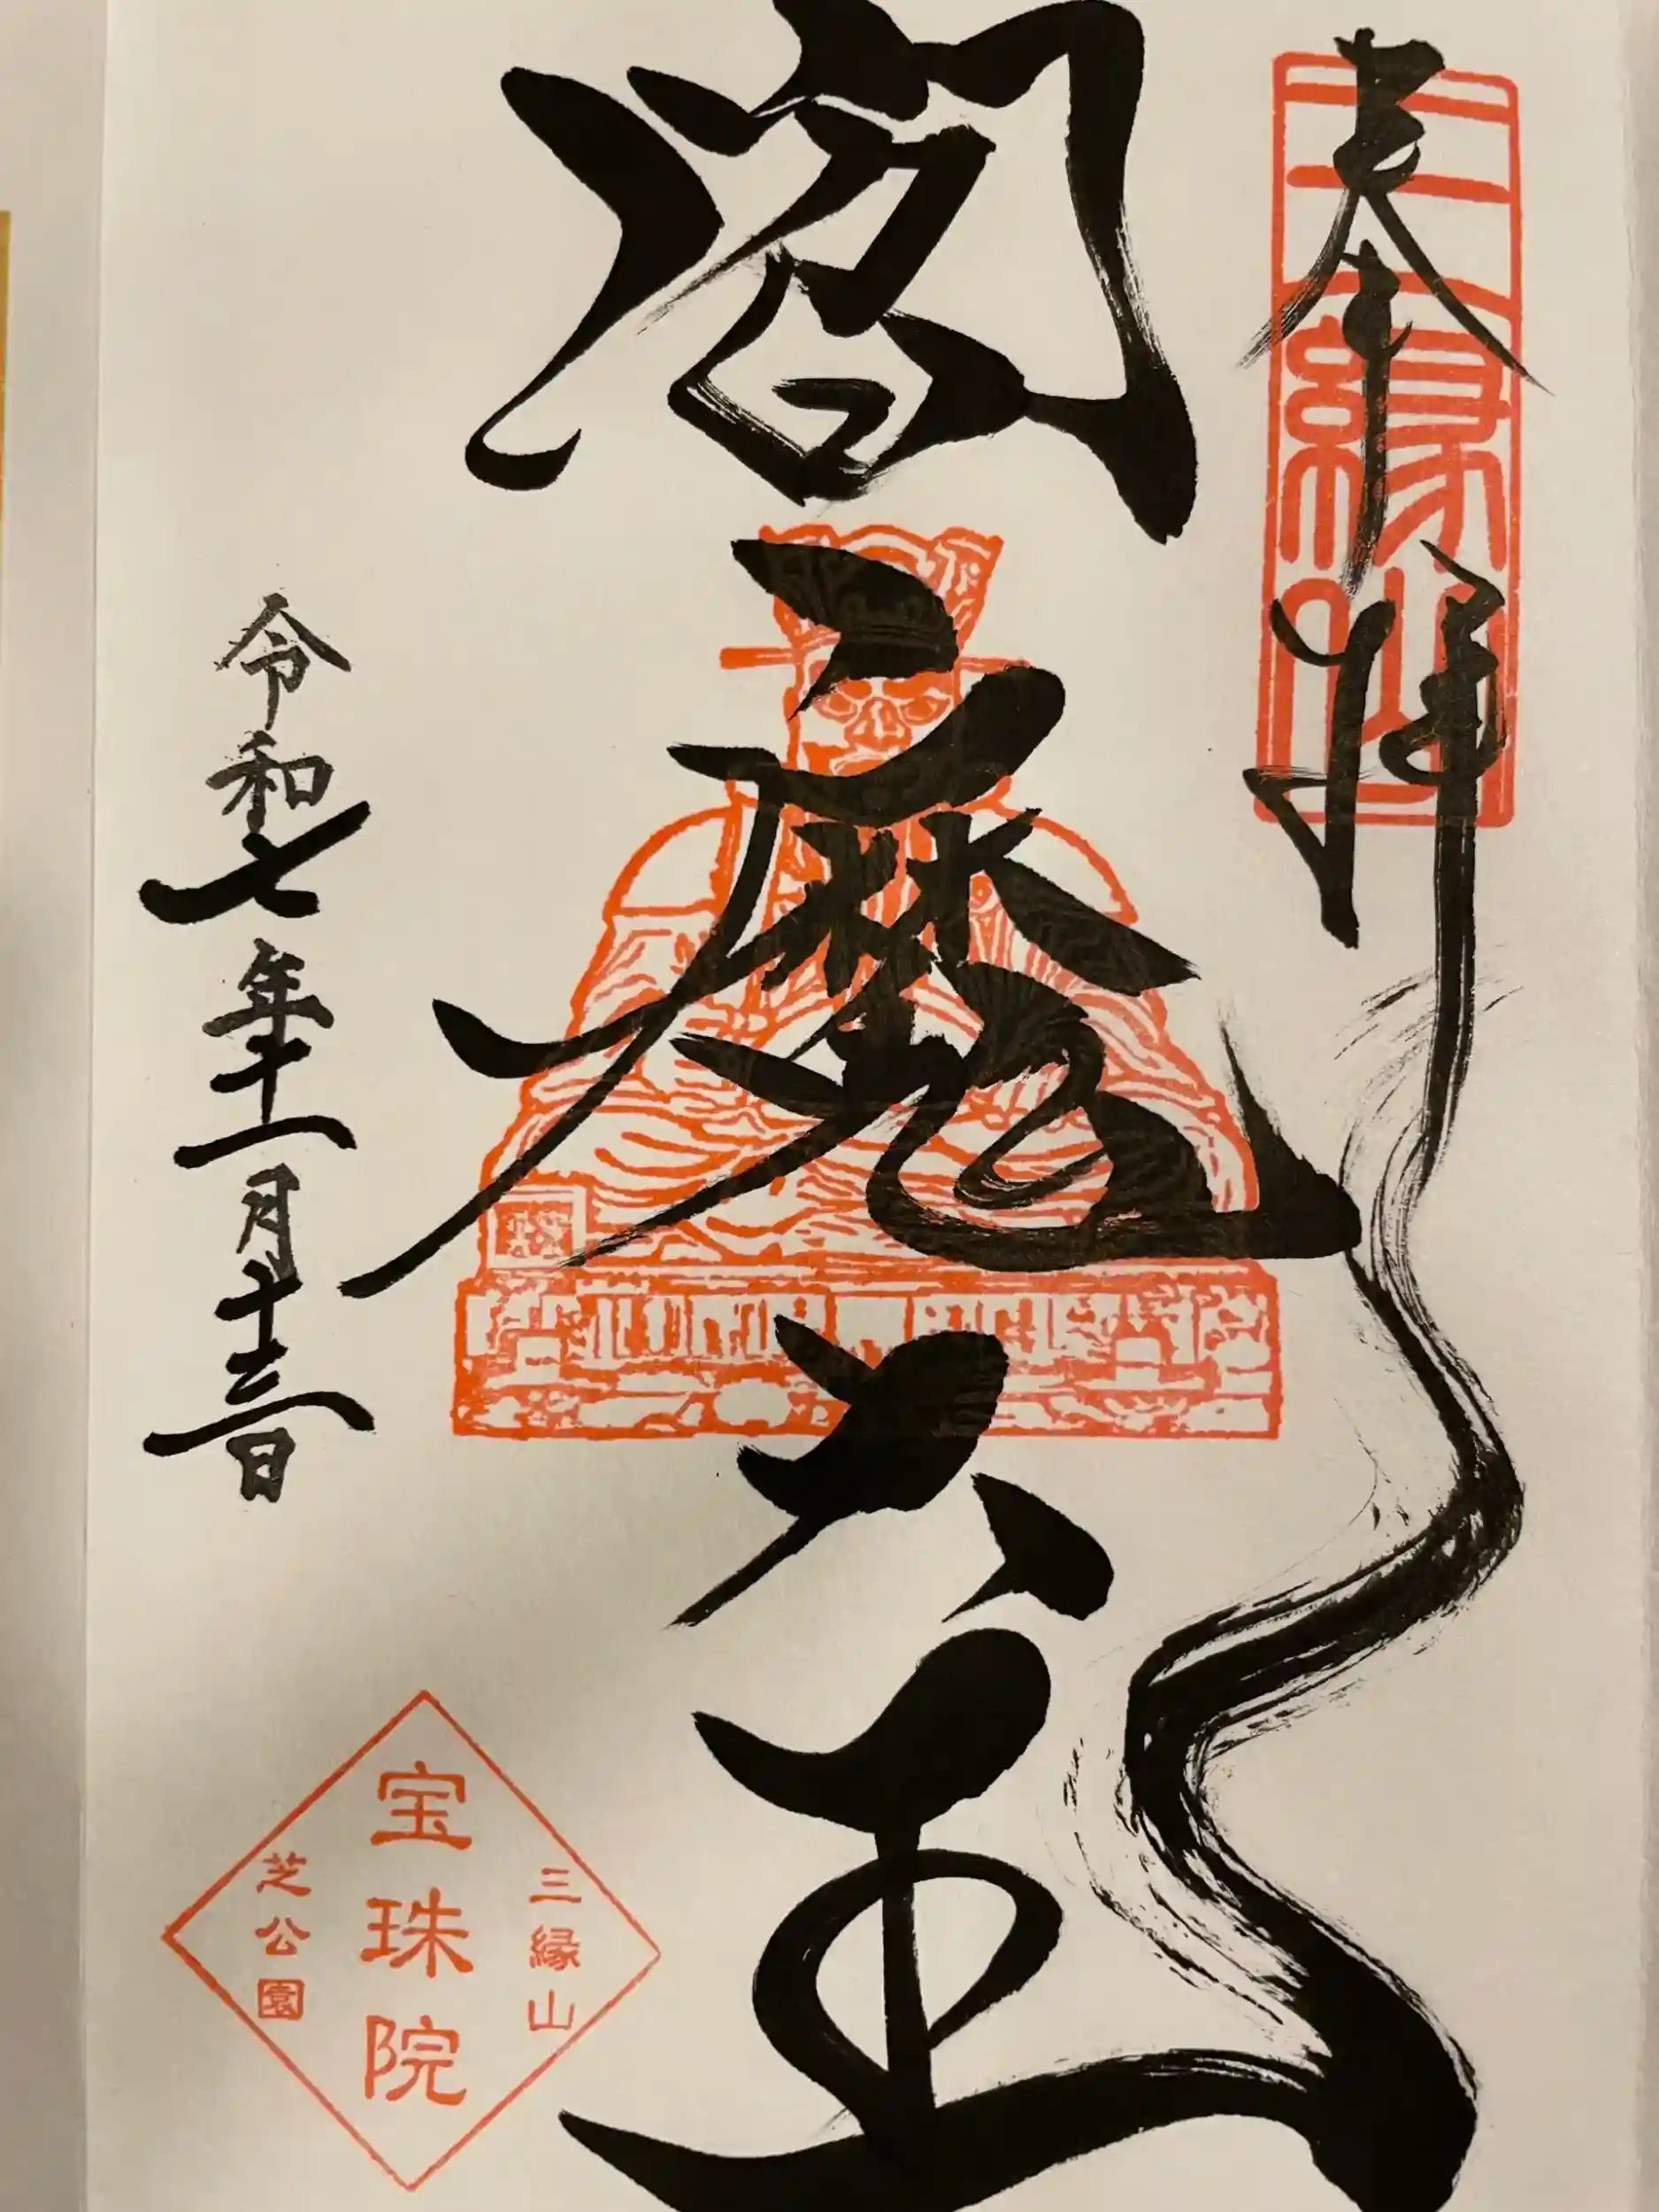 奉拝
三縁山
閻魔大王
令和七年十一月十三日
三縁山
宝珠院
芝公園